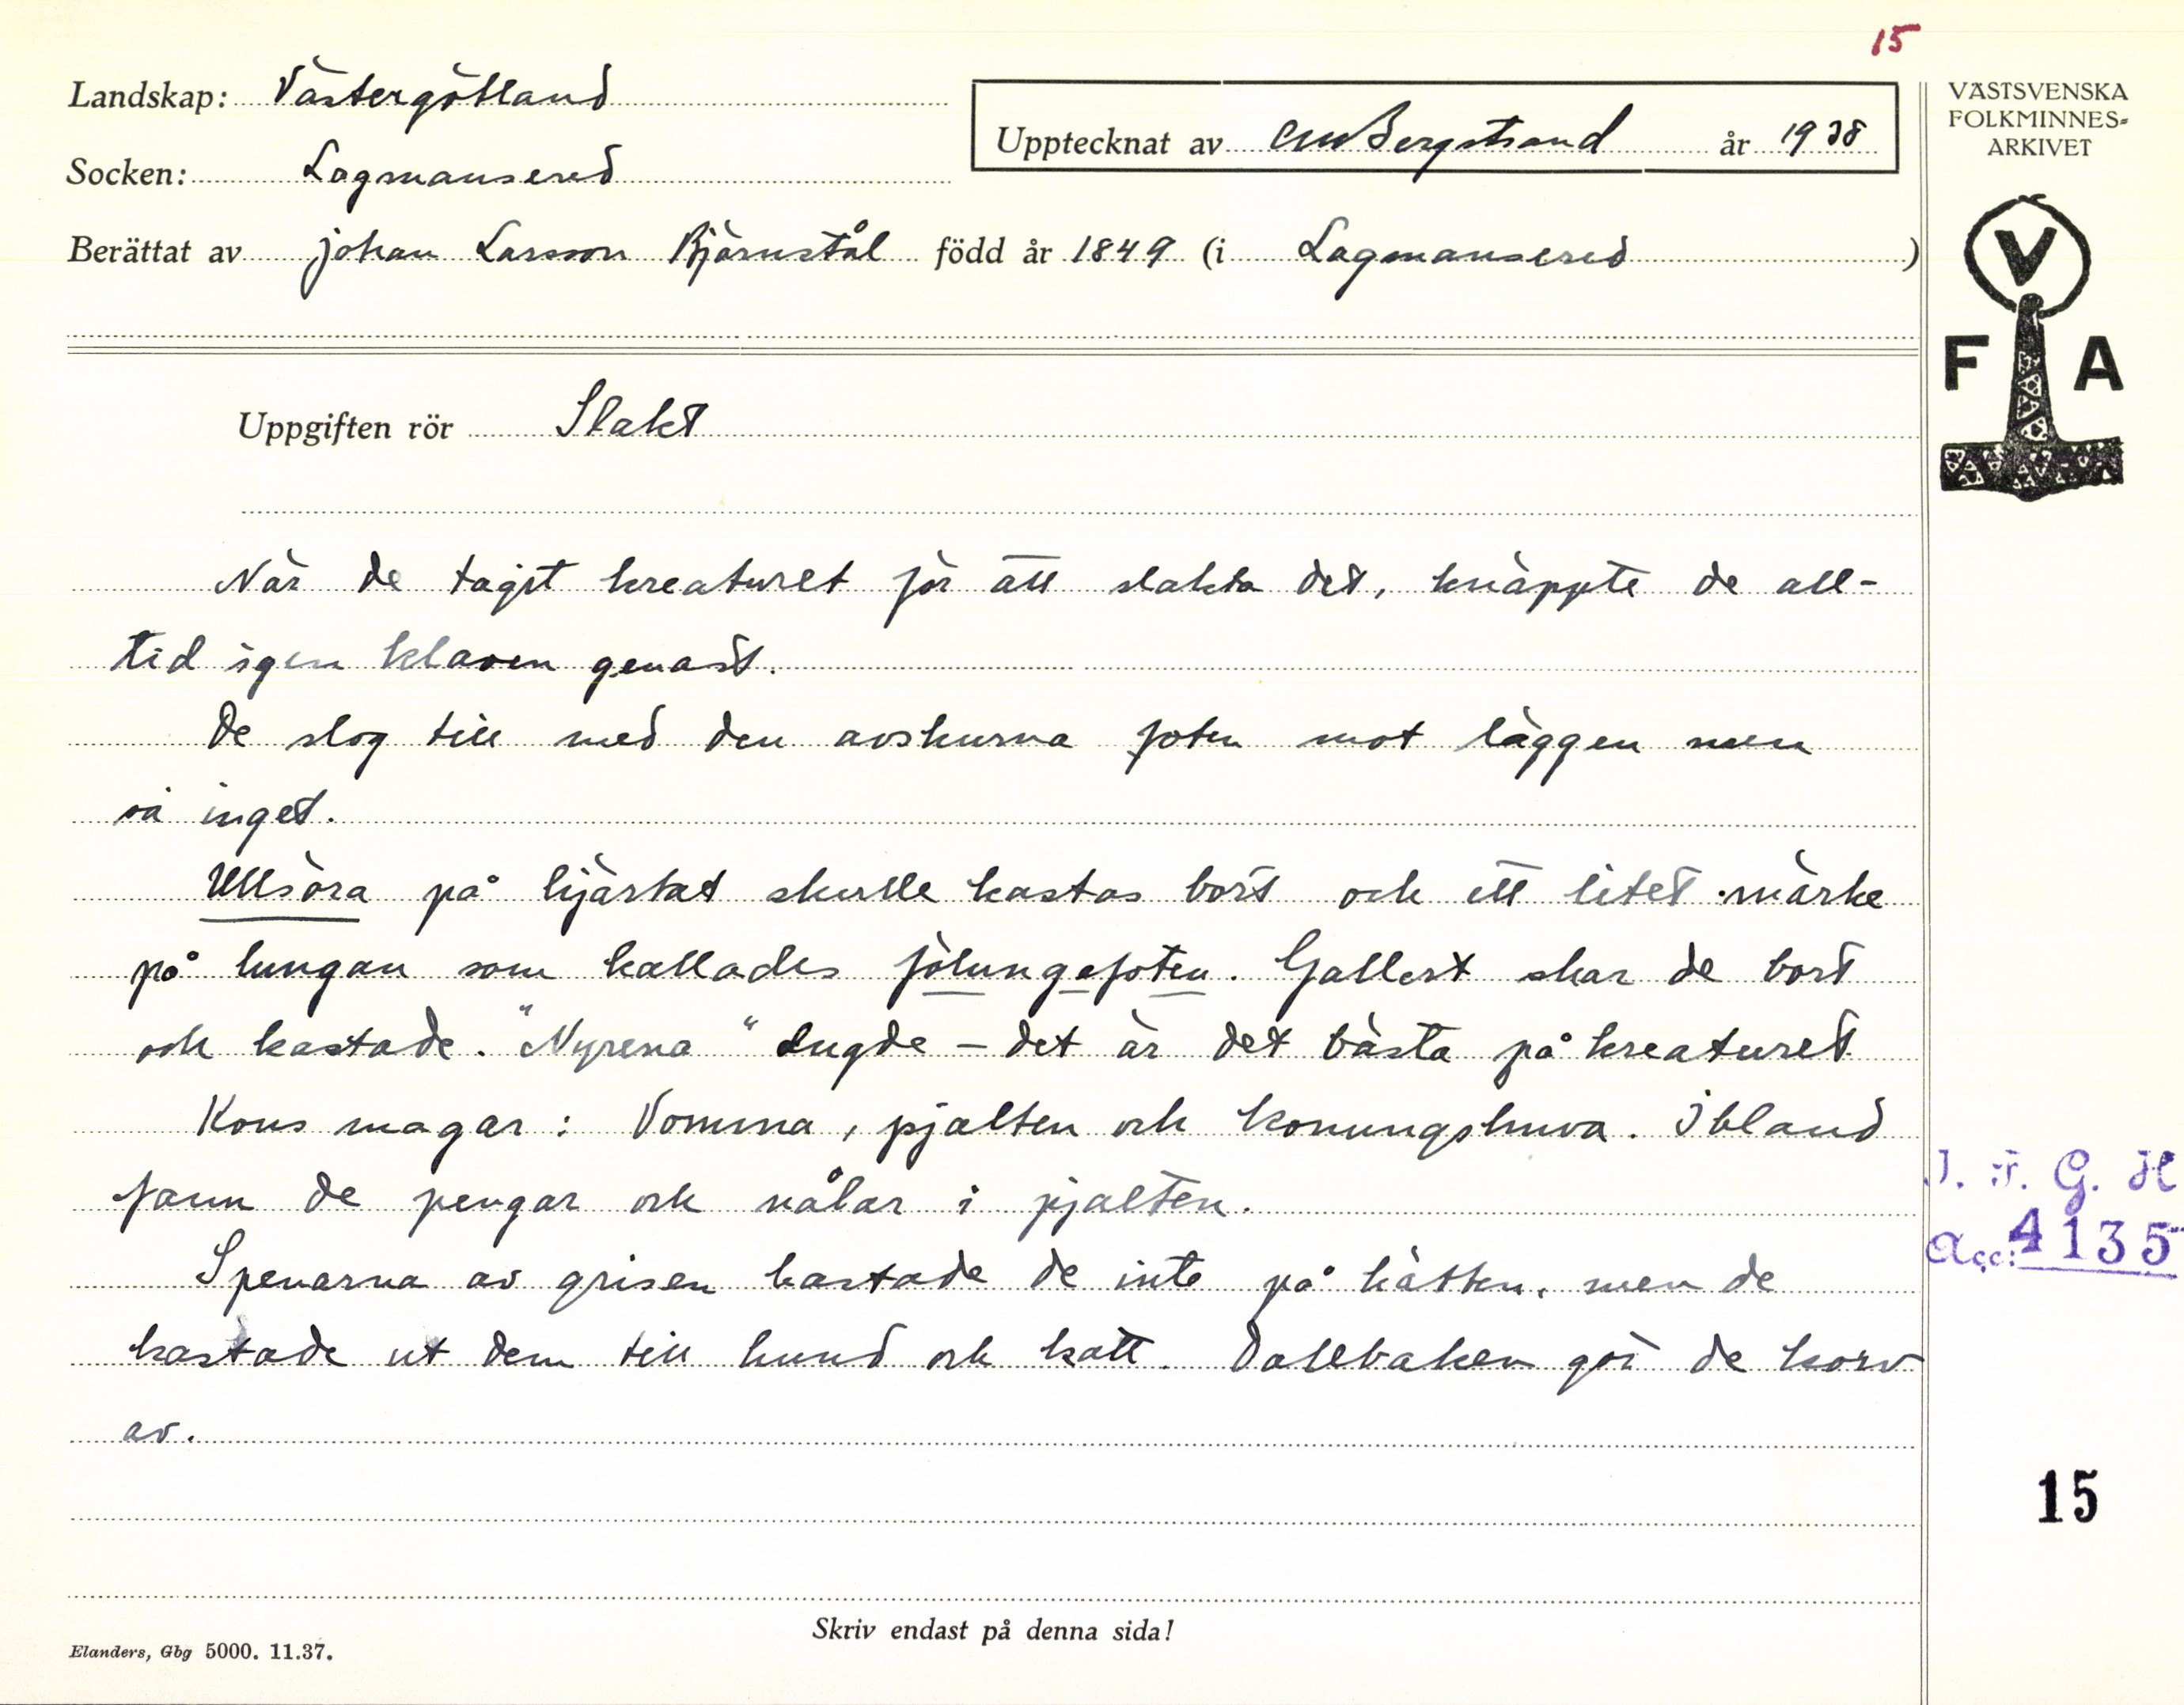 15
Landskap: Västergötland
Socken: Lagmansered
Upptecknat av CMBergstrand år 1938
Berättat av Johan Larsson Bjärnstål född år 1849 (i Lagmansered)
VÄSTSVENSKA
FOLKMINNES-
ARKIVET
V
F A
Uppgiften rör Slakt
När de tagit kreaturet för att slakta det, knäppte de all-
tid igen klaven genast.
De slog till med den avskurna foten mot läggen men
sa inget.
Ullsöra på hjärtat skulle kastas bort och ett litet märke
på lungan som kallades fölungefoten. Gallert skar de bort
och kastade. "Nyrena" dugde - det är det bästa på kreaturet.
Kons magar: Vomma, pjalten och konungshuva. Ibland
fann de pengar och nålar i pjalten.
Spenarna av grisen kastade de inte på kätten, men de
kastade ut dem till hund och katt. Dallbaken gör de korv
av.
I. F. G. H
Acc: 4135
15
Skriv endast på denna sida!
Elanders, Gbg 5000. 11.37.